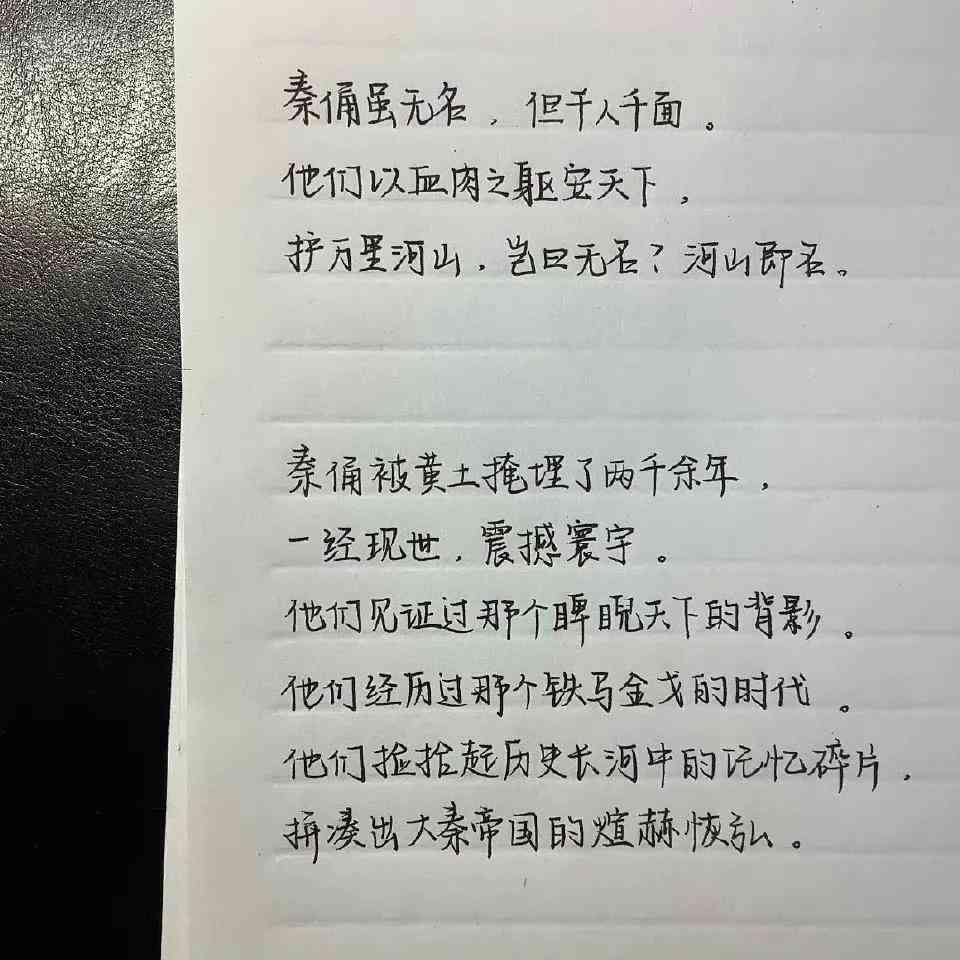 秦俑虽无名，但千人千面。
他们以血肉之躯安天下，
护万里河山，岂曰无名？河山即名。
秦俑被黄土掩埋了两千余年，
一经现世，震撼寰宇。
他们见证过那个睥睨天下的背影。
他们经历过那个铁马金戈的时代。
他们捡拾起历史长河中的记忆碎片，
拼凑出大秦帝国的煊赫恢弘。